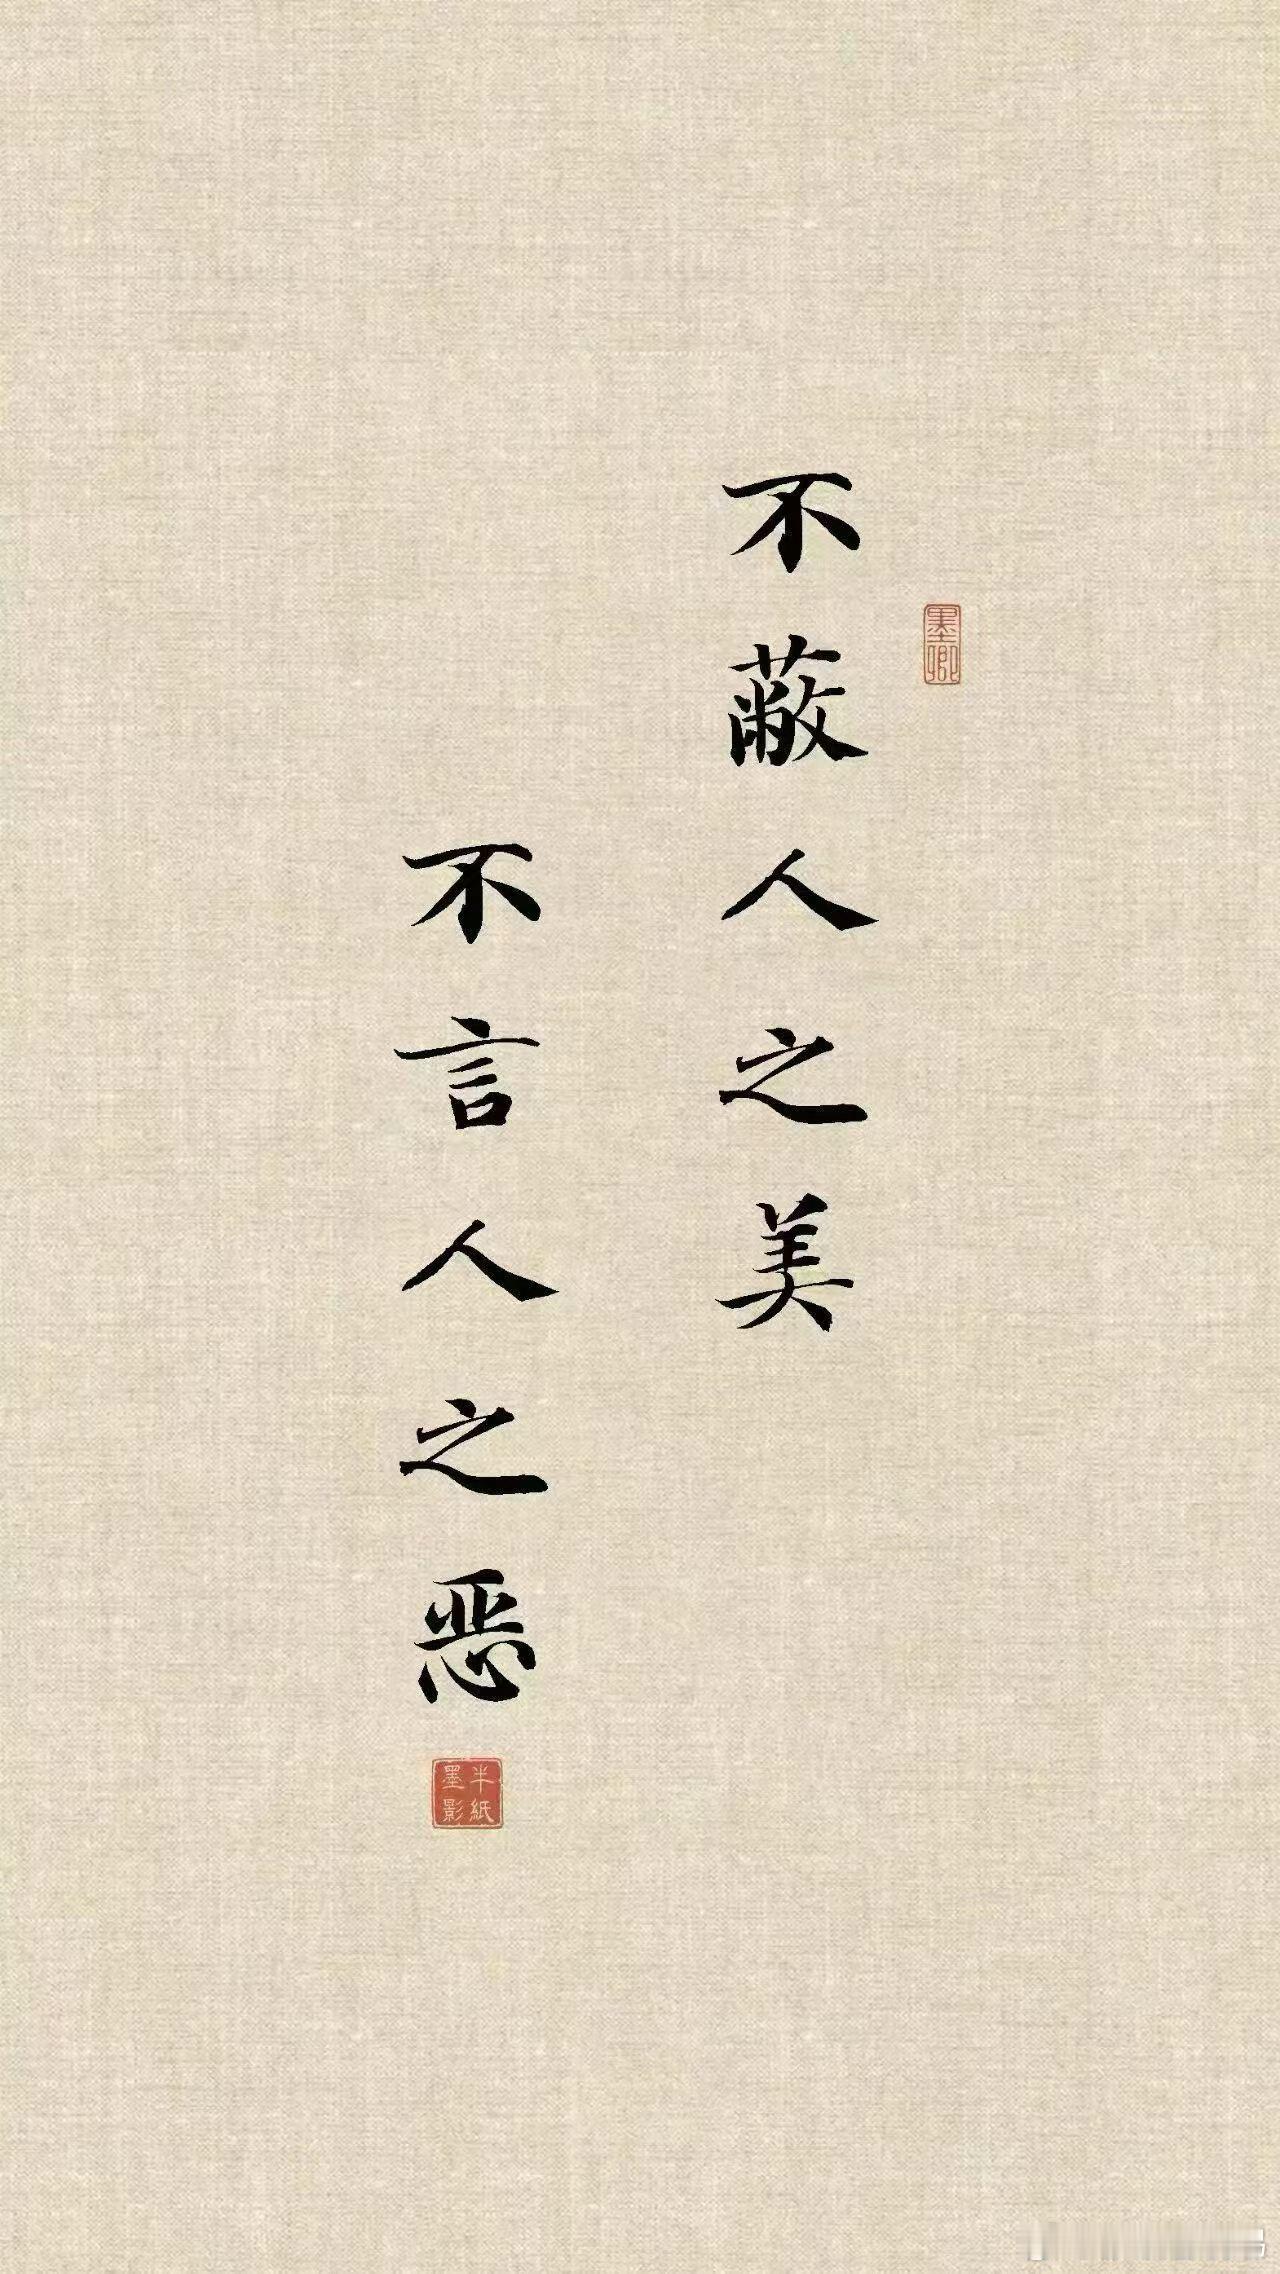 不蔽人之美
不言人之恶
墨卿
半紙墨影